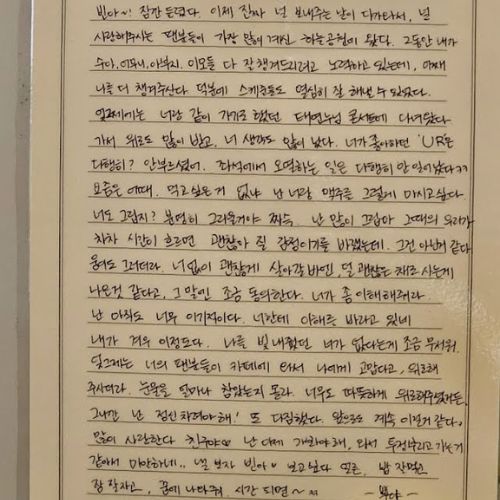 빈아~! 잠깐 들렸다. 이제 진짜 널 보내주는 날이 다가와서, 널
사랑해주시는 팬분들이 가장 많이 계신 하늘공원에 왔다. 그동안 내가
수아, 어머니, 아버지, 이모들 다 잘 챙겨드리려고 노력하고 있는데, 어째
나를 더 챙겨주신다. 덕분에 스케줄들도 열심히 잘 해낼 수 있었다.
너랑 같이 가기로 했던 태연누님 콘서트에 다녀왔다
가서 위로도 많이 받고, 너 생각도 많이 났다. 너가 좋아하던 'UR'은
다행히? 안부르셨어. 좌석에서 오열하는 일은 다행히 안 일어났다ㅋㅋ
요즘은 어때. 먹고싶은 게 없냐 난 너랑 맥주를 그렇게 마시고싶다.
너도 그립지? 분명히 그리울거야 짜슥. 난 많이 그립다 그때의 우리가
차차 시간이 흐르면 괜찮아 질 감정이기를 바랬는데. 그건 아닌거 같다
그러더라. 너 없이 괜찮게 살아갈 바엔, 덜 괜찮은 채로 사는게
나은것 같다고, 그 말엔 조금 동의한다. 너가 좀 이해해줘라
난 아직도 너무 이기적이다. 너한테 이해를 바라고 있네
내가 겨우 이정도다. 나를 빛내줬던 너가 없다는게 조금 무서워.
일그제는 너의 팬분들이 카페에 와서 나에게 고맙다고, 위로해
주시더라. 눈물을 얼마나 참았는지 몰라. 너무도 따뜻하게 위로해주셨거든.
그니깐 난 정신차려야 해! 또 다짐했다. 앞으로도 계속 이럴거 같다,
많이 사랑한다 친구야♡ 난 이제 개화야해, 와서 투정부리고 가는거
같아서 미안하네.. 낼 보자 빈아♡ 보고싶다 얼른, 밥 잘먹고
잠 잘자고, 꿈에 나타나줘. 시간 되면~